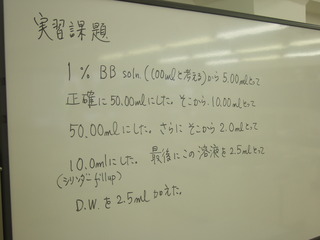 実習課題
1% BB soln (100mlと考える)から 5.00mlとって
正確に50.00mlにした。そこから、10.00mlとって
50.00mlにした。さらにそこから 2.0mlとって
10.0mlにした。最後にこの溶液を2.5mlとって
(シリンダーfill up)
D.W.を2.5ml加えた。